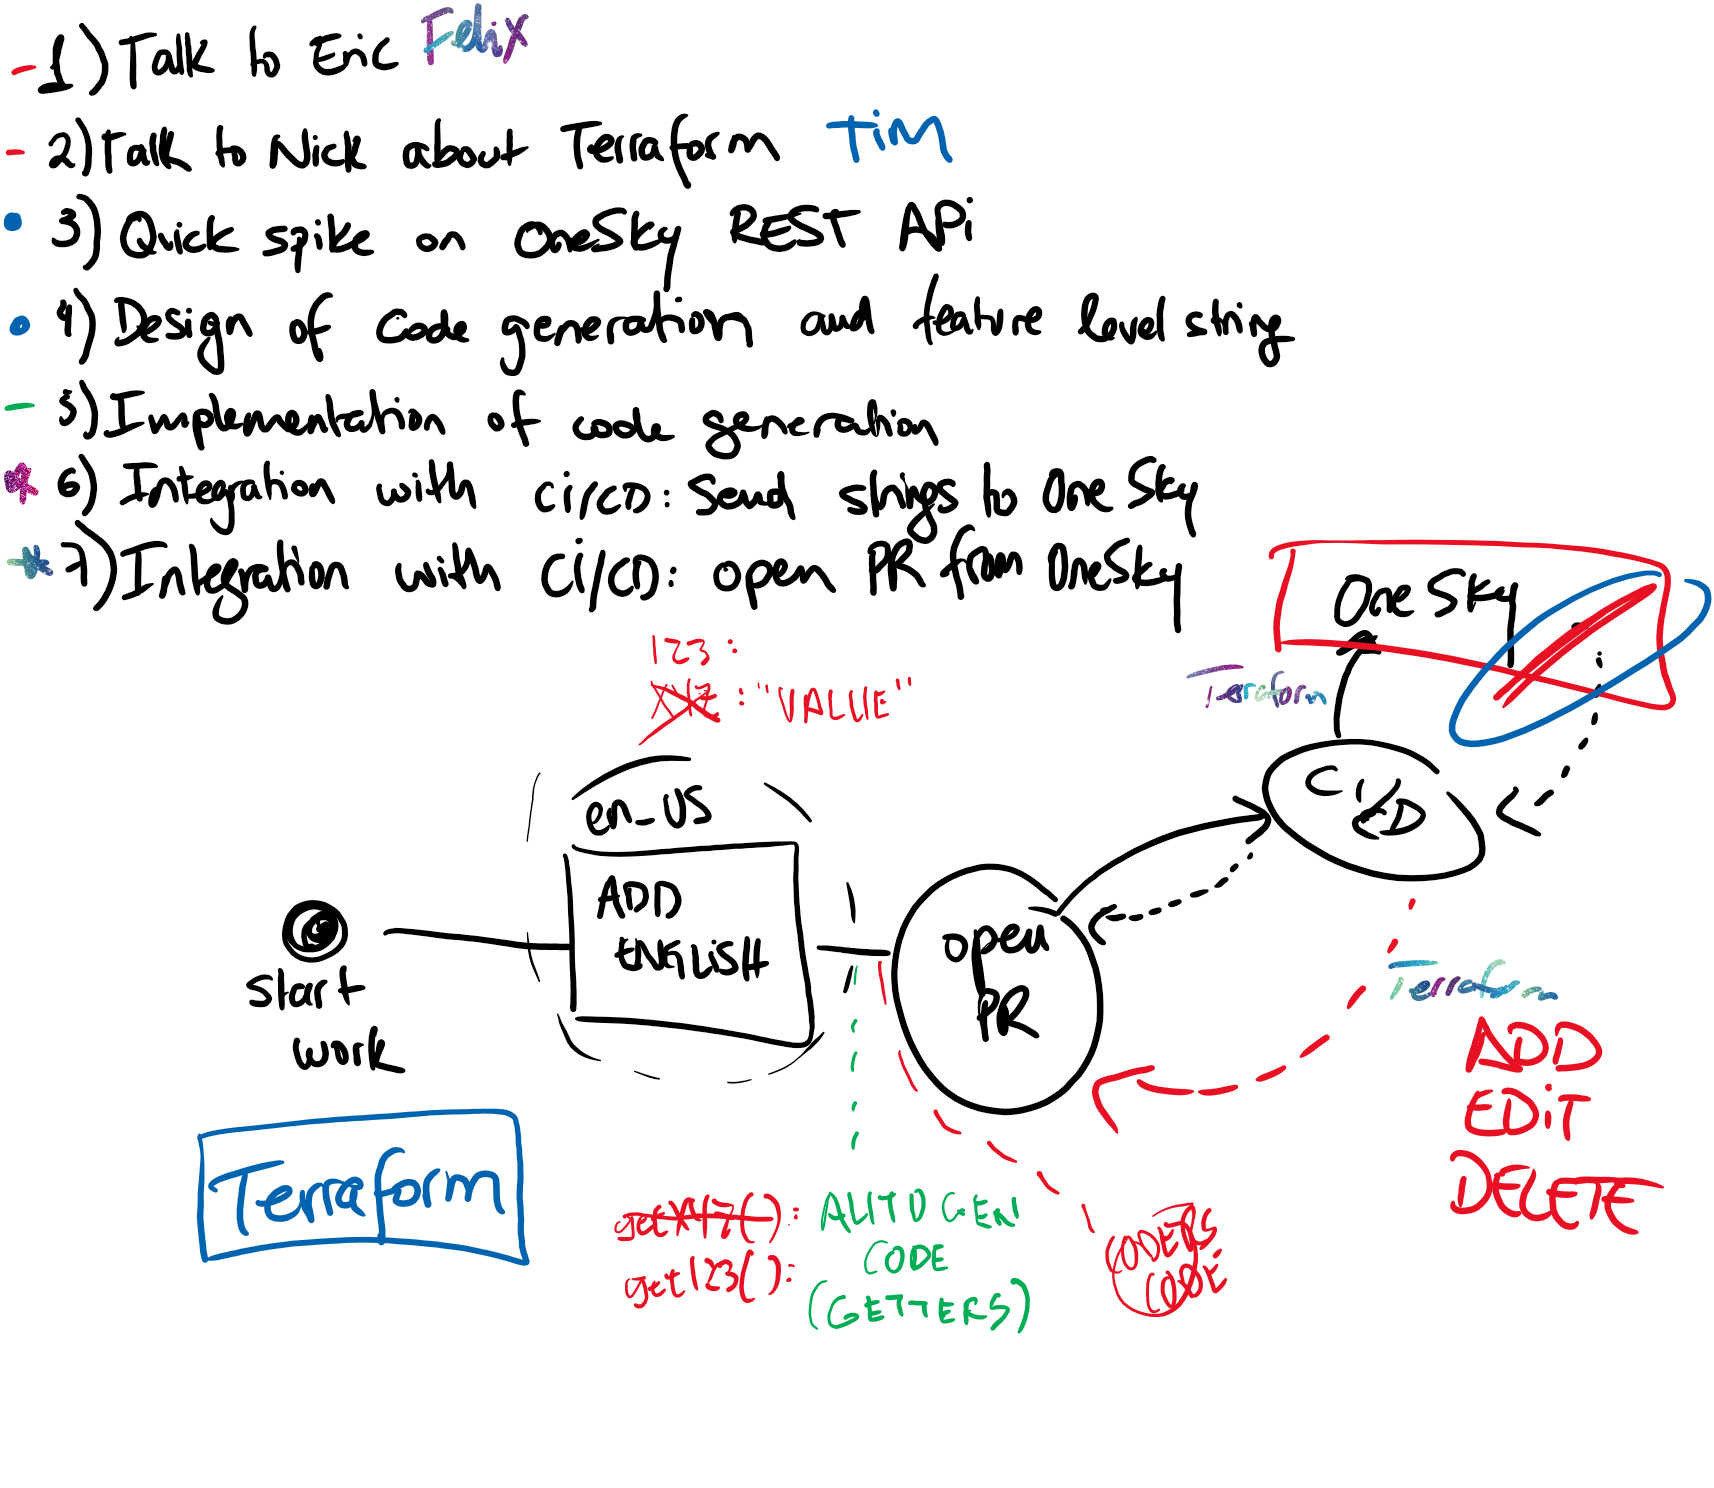 1) Talk to Eric Felix
2) Talk to Nick about Terraform Tim
3) Quick spike on OneSky REST APi
4) Design of code generation and feature level string
5) Implementation of code generation
6) Integration with Ci/CD: Send strings to One Sky
7) Integration with Ci/CD: open PR from OneSky
One Sky
123:
XYZ: "VALUE"
Terraform
en_US
Ci/CD
ADD
ENGLiSH
open
PR
start
work
Terraform
ADD
EDiT
DELETE
Terraform
getXYZ(): AUTO GEN
CODE
get123():
(GETTERS)
CODERS
CODE